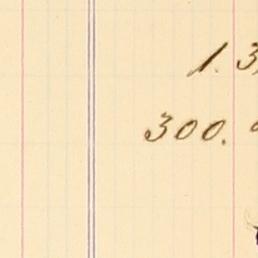 1.3
300.